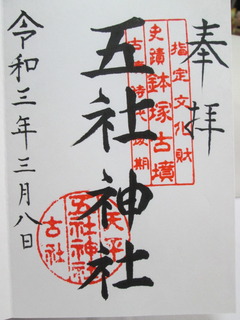 奉拝
指定文化財
史蹟鉢塚古墳
古墳時代後期
五社神社
天平
五社神社
古社
令和三年三月八日